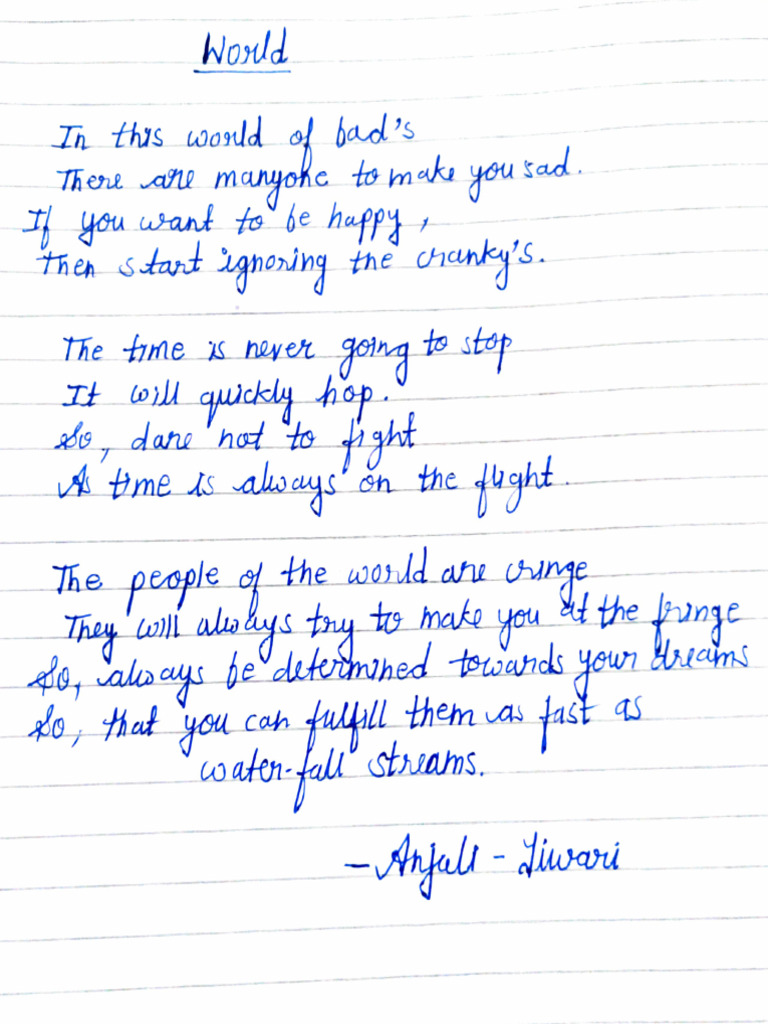 World
In this world of bad's
There are manyone to make you sad.
If you want to be happy,
Then start ignoring the cranky's.
The time is never going to stop
It will quickly hop.
So, dare not to fight
As time is always on the flight.
The people of the world are cringe
They will always try to make you at the fringe
So, always be determined towards your dreams
So, that you can fulfill them as fast as
water-fall streams.
- Anjali - Tiwari